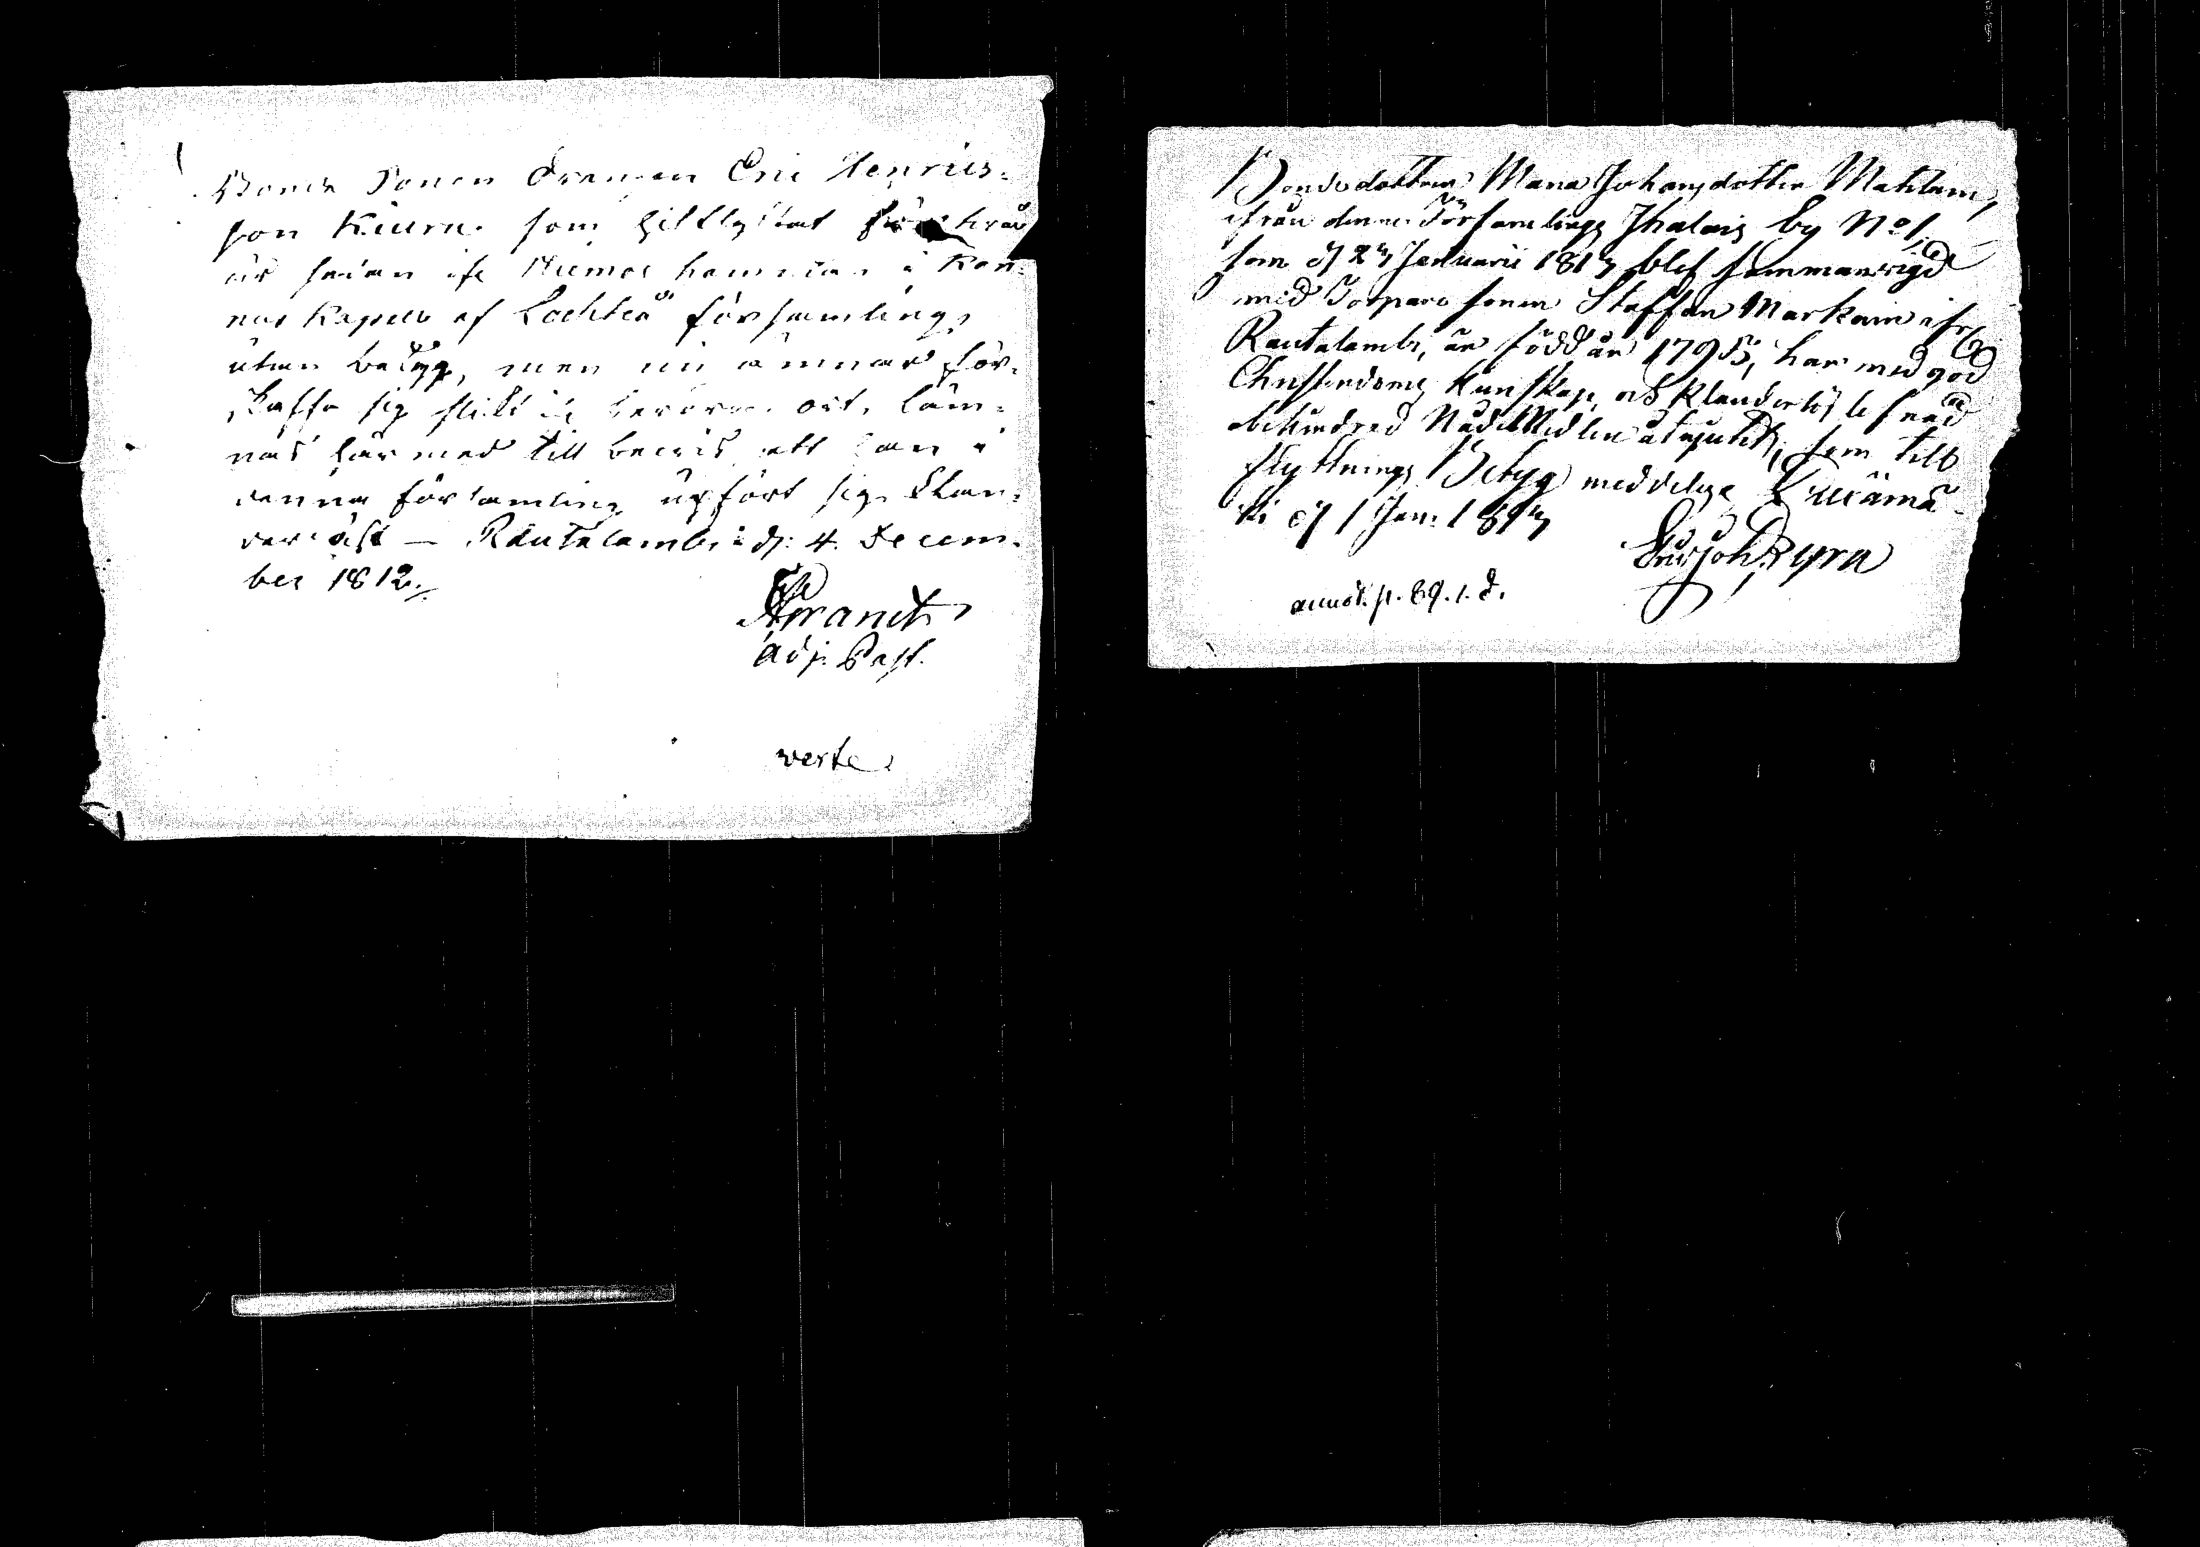 Bonde Sonen Drengen Eric Henrics-
son Kiuru som hitflyttat för två
år sedan ifr Niemos hemman i Kan-
nus Kapell af Lochteå församling,
utan betyg, men nu ämnar för-
skaffa sig slikt ifr berörde ort, läm-
nas härmed till bevis att han i
denna församling upfört sig klan-
derlöst — Rautalambi d: 4. Decem-
ber 1812.
Adj: Past.
verte
Bondedottren Maria Johansdotter Matilain,
ifrån denne Församlings Ihalais by No 1,
som d 27 Januarii 1817 blef sammanvigd
med Torpare sonen Staffan Markain ifr
Rautalambi, är född år 1795, har med god
Christendoms kunskap och klanderlös lefnad
obehindrad Nådemedlen åtnjutit, som till
flyttnings Betyg meddelas
d 1 Jan. 1817
Joh. Pyra
annot. p. 69. 1. d.